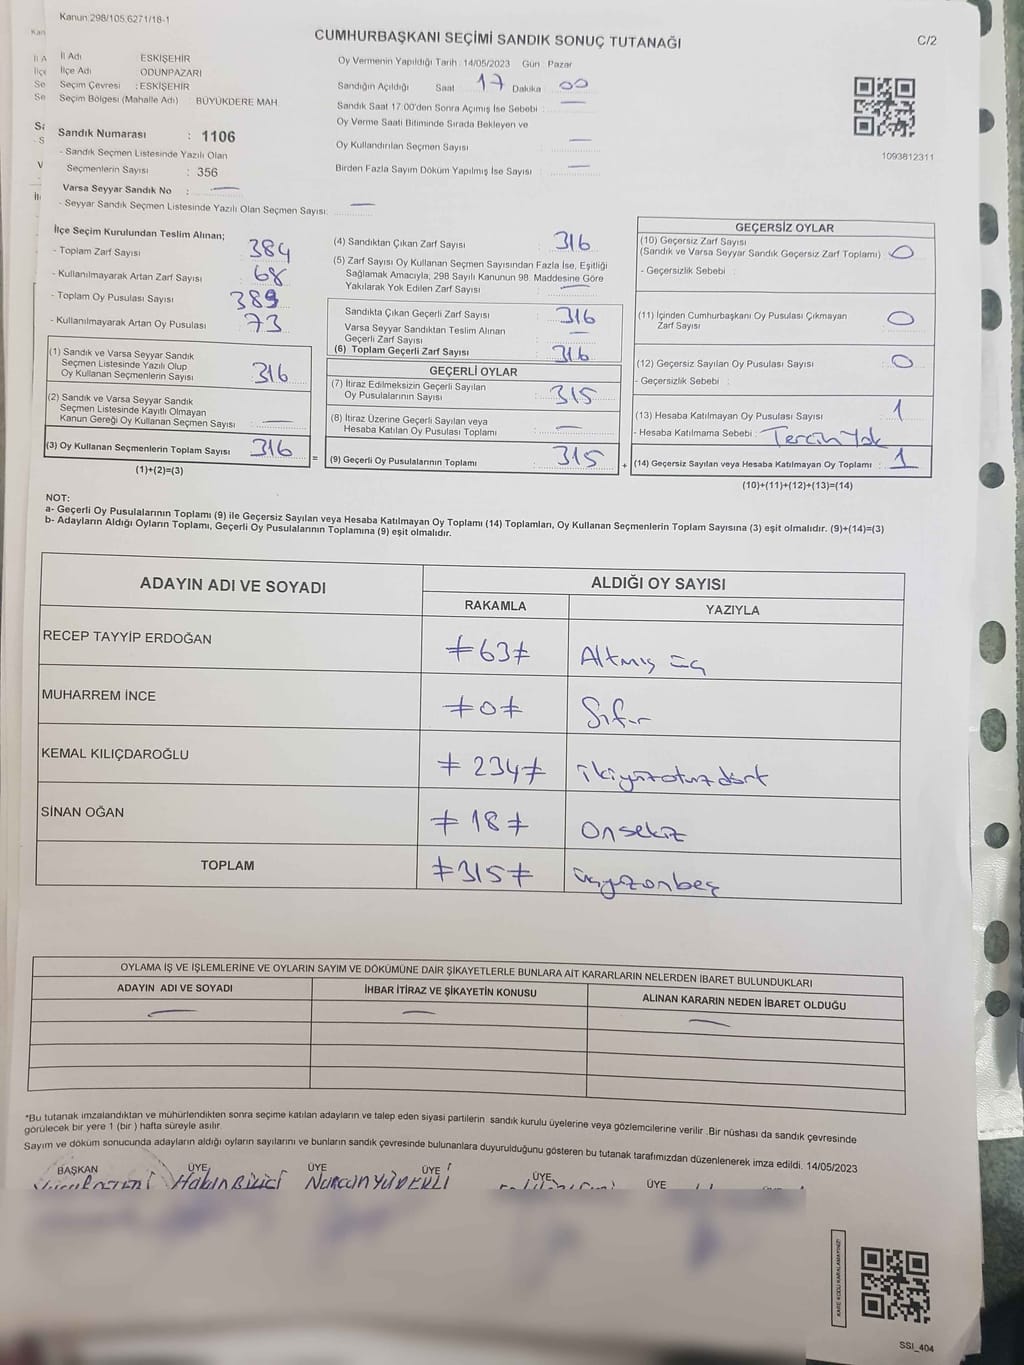 Kanun:298/105,6271/18-1
CUMHURBAŞKANI SEÇİMİ SANDIK SONUÇ TUTANAĞI
C/2
İl Adı ESKİŞEHİR
İlçe Adı ODUNPAZARI
Seçim Çevresi : ESKİŞEHİR
Seçim Bölgesi (Mahalle Adı) : BÜYÜKDERE MAH.
Sandık Numarası : 1106
- Sandık Seçmen Listesinde Yazılı Olan
Seçmenlerin Sayısı : 356
Varsa Seyyar Sandık No : —
- Seyyar Sandık Seçmen Listesinde Yazılı Olan Seçmen Sayısı: —
Oy Vermenin Yapıldığı Tarih : 14/05/2023 Gün : Pazar
Sandığın Açıldığı Saat 17 Dakika 00
Sandık Saat 17.00'den Sonra Açımış İse Sebebi : —
Oy Verme Saati Bitiminde Sırada Bekleyen ve
Oy Kullandırılan Seçmen Sayısı —
Birden Fazla Sayım Döküm Yapılmış İse Sayısı : —
1093812311
İlçe Seçim Kurulundan Teslim Alınan;
- Toplam Zarf Sayısı 384
- Kullanılmayarak Artan Zarf Sayısı 68
- Toplam Oy Pusulası Sayısı 389
- Kullanılmayarak Artan Oy Pusulası 73
(1) Sandık ve Varsa Seyyar Sandık
Seçmen Listesinde Yazılı Olup
Oy Kullanan Seçmenlerin Sayısı 316
(2) Sandık ve Varsa Seyyar Sandık
Seçmen Listesinde Kayıtlı Olmayan
Kanun Gereği Oy Kullanan Seçmen Sayısı —
(3) Oy Kullanan Seçmenlerin Toplam Sayısı 316
(1)+(2)=(3)
=
(4) Sandıktan Çıkan Zarf Sayısı 316
(5) Zarf Sayısı Oy Kullanan Seçmen Sayısından Fazla İse, Eşitliği
Sağlamak Amacıyla; 298 Sayılı Kanunun 98. Maddesine Göre
Yakılarak Yok Edilen Zarf Sayısı : —
Sandıkta Çıkan Geçerli Zarf Sayısı : 316
Varsa Seyyar Sandıktan Teslim Alınan
Geçerli Zarf Sayısı : —
(6) Toplam Geçerli Zarf Sayısı 316
GEÇERLİ OYLAR
(7) İtiraz Edilmeksizin Geçerli Sayılan
Oy Pusulalarının Sayısı : 315
(8) İtiraz Üzerine Geçerli Sayılan veya
Hesaba Katılan Oy Pusulası Toplamı : —
(9) Geçerli Oy Pusulalarının Toplamı : 315
+
GEÇERSİZ OYLAR
(10) Geçersiz Zarf Sayısı
(Sandık ve Varsa Seyyar Sandık Geçersiz Zarf Toplamı) : 0
- Geçersizlik Sebebi :
(11) İçinden Cumhurbaşkanı Oy Pusulası Çıkmayan
Zarf Sayısı 0
(12) Geçersiz Sayılan Oy Pusulası Sayısı : 0
- Geçersizlik Sebebi :
(13) Hesaba Katılmayan Oy Pusulası Sayısı 1
- Hesaba Katılmama Sebebi : Tercih Yok
(14) Geçersiz Sayılan veya Hesaba Katılmayan Oy Toplamı : 1
(10)+(11)+(12)+(13)=(14)
NOT:
a- Geçerli Oy Pusulalarının Toplamı (9) ile Geçersiz Sayılan veya Hesaba Katılmayan Oy Toplamı (14) Toplamları, Oy Kullanan Seçmenlerin Toplam Sayısına (3) eşit olmalıdır. (9)+(14)=(3)
b- Adayların Aldığı Oyların Toplamı, Geçerli Oy Pusulalarının Toplamına (9) eşit olmalıdır.
ADAYIN ADI VE SOYADI ALDIĞI OY SAYISI
RAKAMLA YAZIYLA
RECEP TAYYİP ERDOĞAN ≠63≠ Altmış üç
MUHARREM İNCE ≠0≠ Sıfır
KEMAL KILIÇDAROĞLU ≠234≠ ikiyüzotuzdört
SİNAN OĞAN ≠18≠ Onsekiz
TOPLAM ≠315≠ üçyüzonbeş
OYLAMA İŞ VE İŞLEMLERİNE VE OYLARIN SAYIM VE DÖKÜMÜNE DAİR ŞİKAYETLERLE BUNLARA AİT KARARLARIN NELERDEN İBARET BULUNDUKLARI
ADAYIN ADI VE SOYADI İHBAR İTİRAZ VE ŞİKAYETİN KONUSU ALINAN KARARIN NEDEN İBARET OLDUĞU
— — —
*Bu tutanak imzalandıktan ve mühürlendikten sonra seçime katılan adayların ve talep eden siyasi partilerin sandık kurulu üyelerine veya gözlemcilerine verilir .Bir nüshası da sandık çevresinde
görülecek bir yere 1 (bir ) hafta süreyle asılır.
Sayım ve döküm sonucunda adayların aldığı oyların sayılarını ve bunların sandık çevresinde bulunanlara duyurulduğunu gösteren bu tutanak tarafımızdan düzenlenerek imza edildi. 14/05/2023
BAŞKAN ÜYE ÜYE ÜYE ÜYE ÜYE
Hakan Bilici
KARE KODU KARALAMAYINIZ!
SSI_404